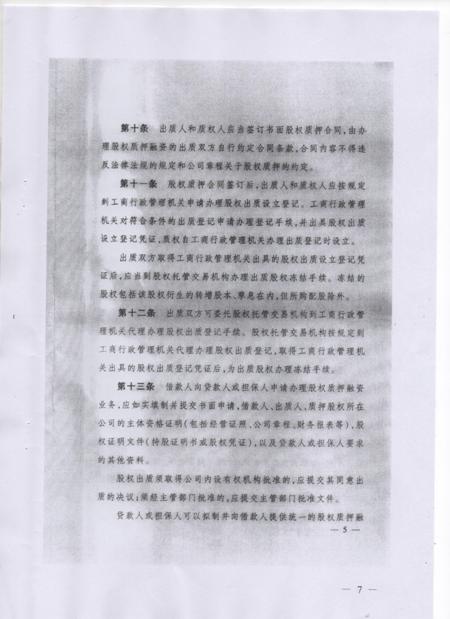 第十条　出质人和质权人应当签订书面股权质押合同,由办
理股权质押融资的出质双方自行约定合同条款,合同内容不得违
反法律法规的规定和公司章程关于股权质押的约定。
第十一条　股权质押合同签订后,出质人和质权人应按规定
到工商行政管理机关申请办理股权出质设立登记。工商行政管理
机关对符合条件的出质登记申请办理登记手续,并出具股权出质
设立登记凭证,质权自工商行政管理机关办理出质登记时设立。
出质双方取得工商行政管理机关出具的股权出质设立登记凭
证后,应当到股权托管交易机构办理出质股权冻结手续。冻结的
股权包括该股权衍生的转增股本、孳息在内,但所购配股除外。
第十二条　出质双方可委托股权托管交易机构到工商行政管
理机关代理办理股权出质登记手续。股权托管交易机构按规定到
工商行政管理机关代理办理股权出质登记,取得工商行政管理机
关出具的股权出质登记凭证后,为出质股权办理冻结手续。
第十三条　借款人向贷款人或担保人申请办理股权质押融资
业务,应如实填制并提交书面申请,借款人、出质人、质押股权所在
公司的主体资格证明(包括经营证照、公司章程、财务报表等),股
权证明文件(持股证明书或股权凭证),以及贷款人或担保人要求
的其他资料。
股权出质须取得公司内设有权机构批准的,应提交其同意出
质的决议;须经主管部门批准的,应提交主管部门批准文件。
贷款人或担保人可以拟制并向借款人提供统一的股权质押融
— 5 —
— 7 —